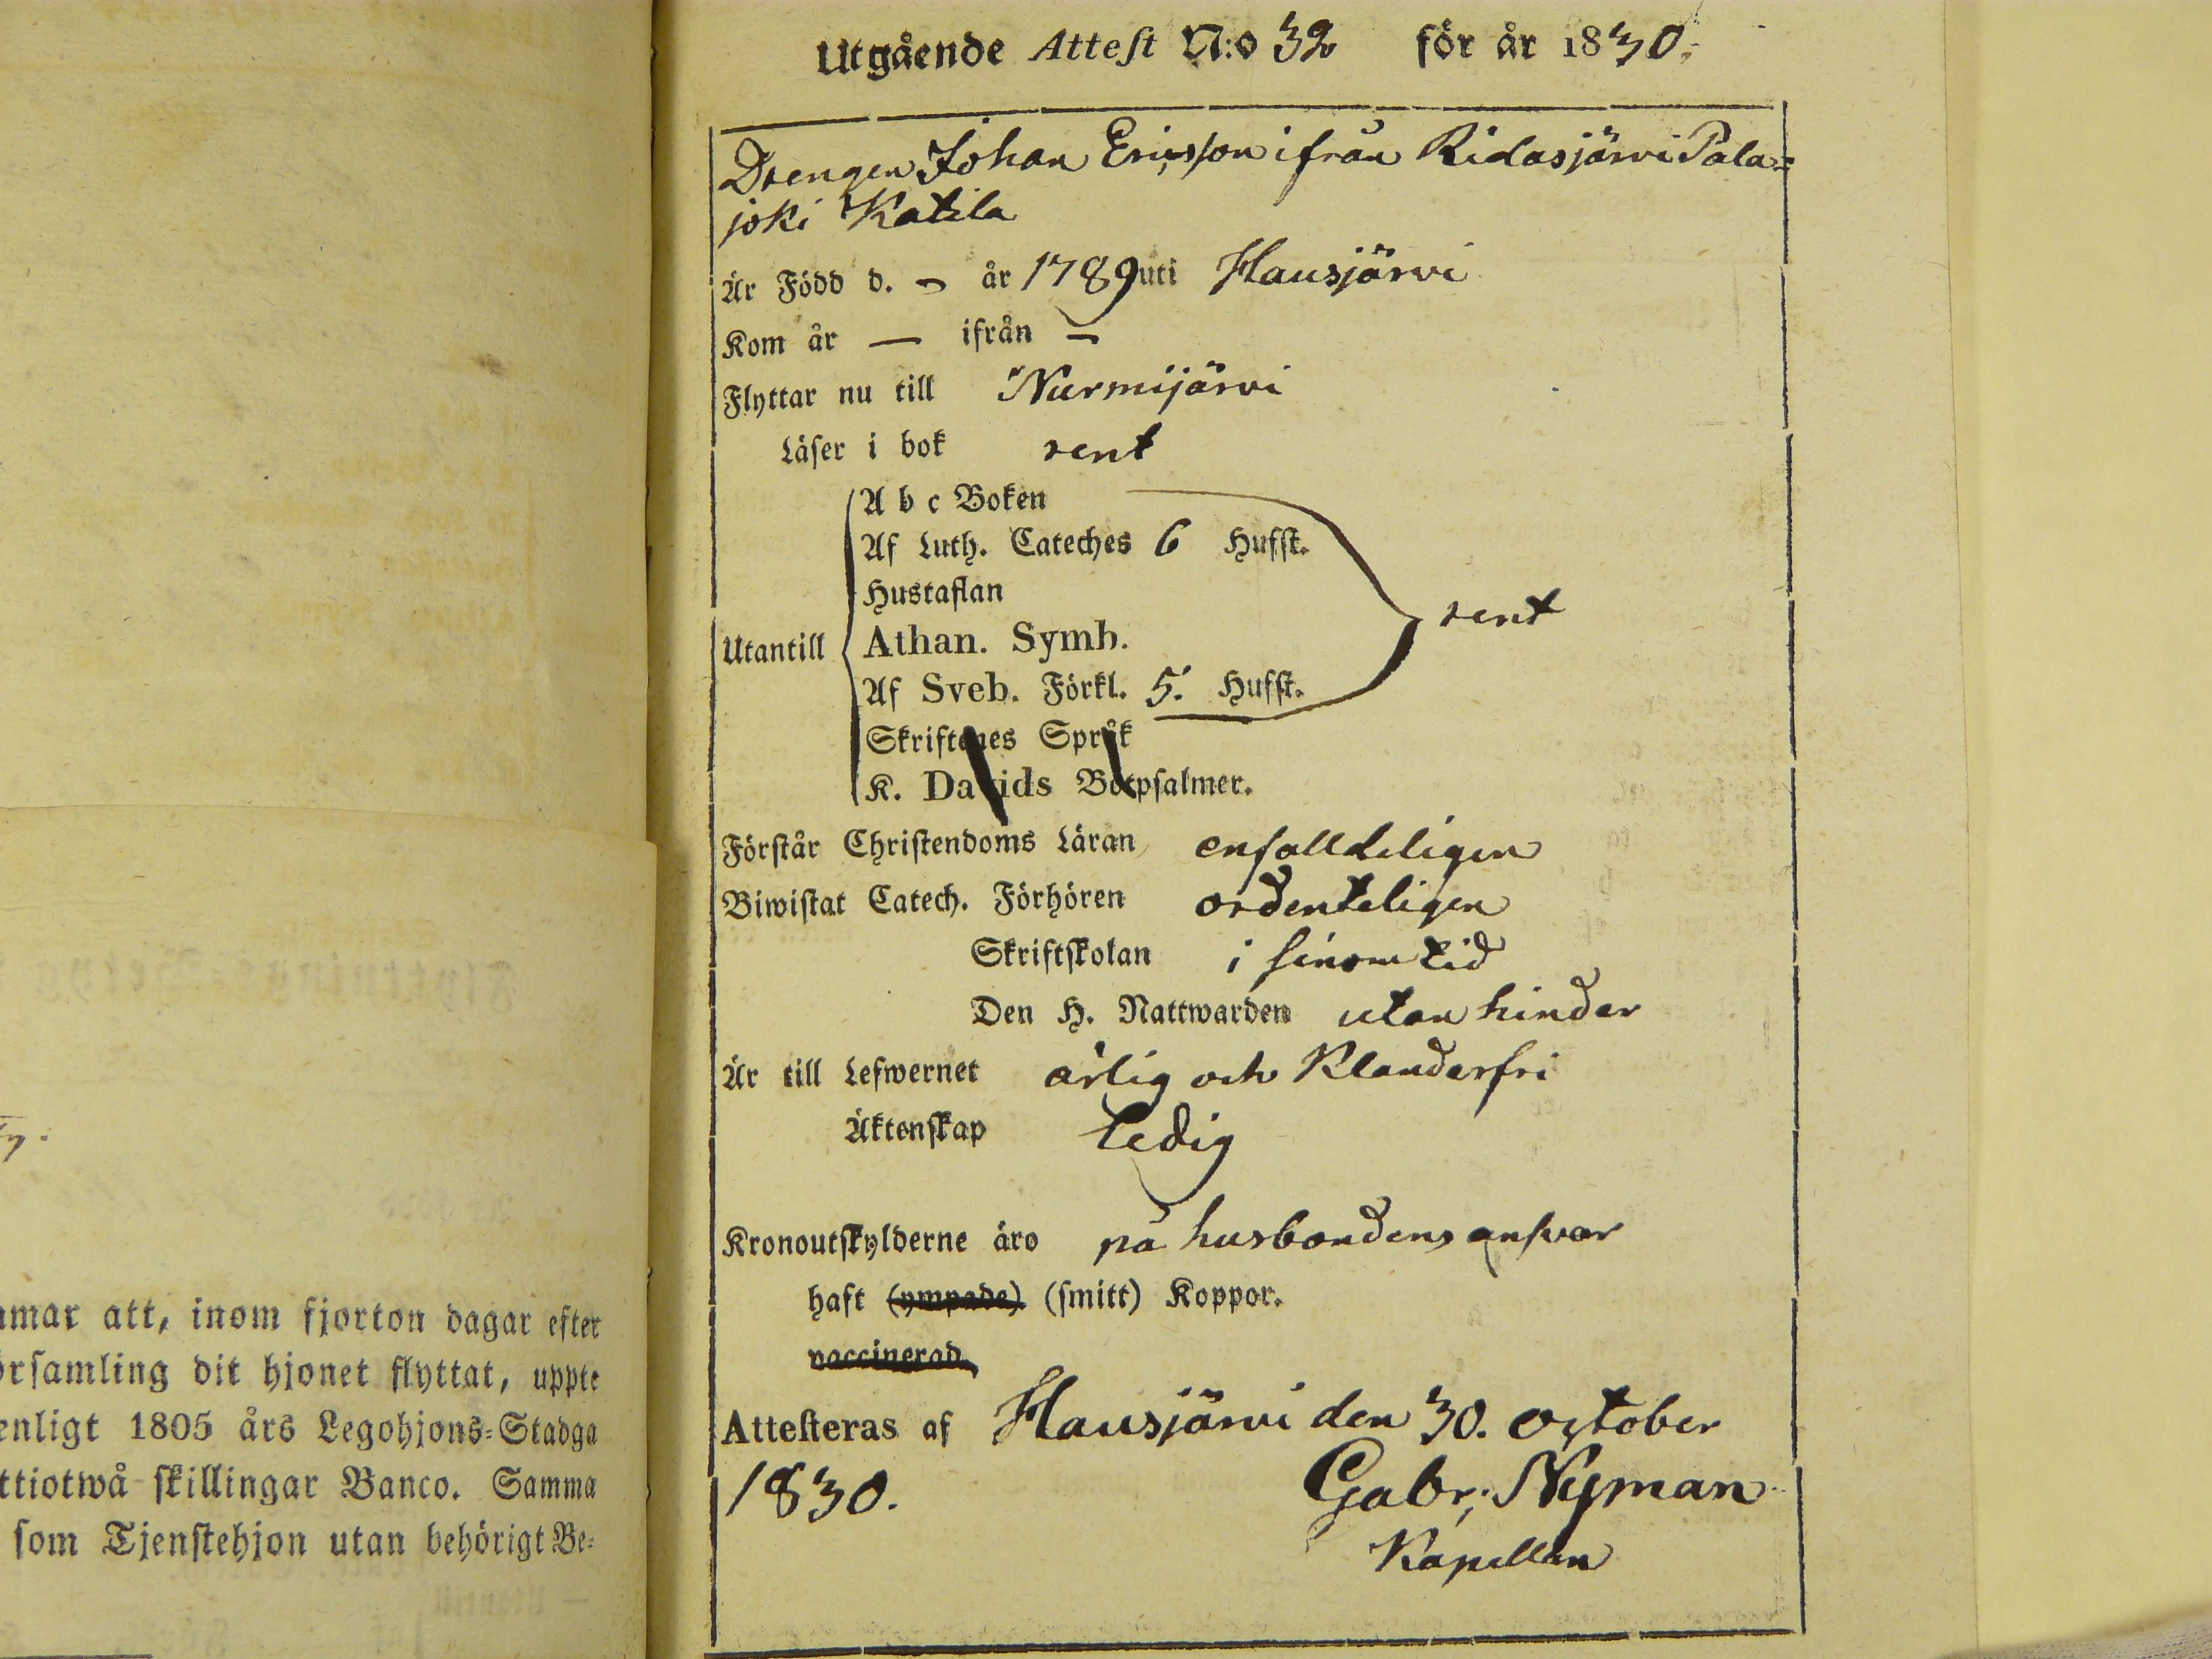 mar att, inom fjorton dagar efter
församling dit hjonet flyttat, uppte
enligt 1805 års Legohjons-Stadga
ttiotwå skillingar Banco. Samma
som Tjenstehjon utan behörigt Be-
Utgående Attest N:o 32 för år 1830.
Drengen Johan Ericsson ifrån Ridasjärvi Pala=
joki Katila
Är Född d. - år 1789 uti Hausjärvi
Kom år — ifrån —
Flyttar nu till Nurmijärvi
Läser i bok rent
A b c Boken
Af Luth. Cateches 6 Hufst.
Hustaflan
Utantill Athan. Symb. rent
Af Sveb. Förkl. 5. Hufst.
Skriftenes Språk
K. Davids Botpsalmer.
Förstår Christendoms Läran enfalldeligen
Biwistat Catech. Förhören ordenteligen
Skriftskolan i sinom tid
Den H. Nattwarden utan hinder
Är till Lefwernet ärlig och Klanderfri
Äktenskap ledig
Kronoutskylderne äro på husbondens answar
haft (ympade) (smitt) Koppor.
vaccinerad
Attesteras af Hausjärvi den 30. October
1830. Gabr: Nyman
Kapellan